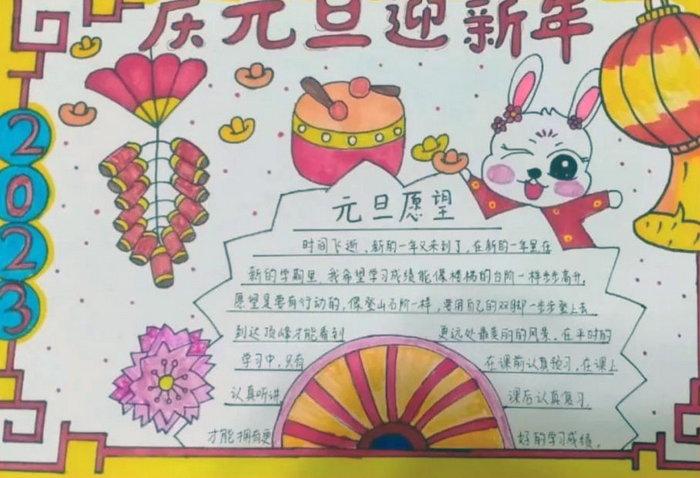 庆元旦迎新年
2023
元旦愿望
时间飞逝、新的一年又来到了，在新的一年里在
新的学期里，我希望学习成绩能像楼梯的台阶一样步步高升，
愿望是要有行动的，像登山石阶一样，要用自己的双脚一步步登上去
到达顶峰才能看到 更远处最美丽的风景，在平时的
学习中，只有 在课前认真预习，在课上
认真听讲 课后认真复习，
才能拥有更 好的学习成绩。